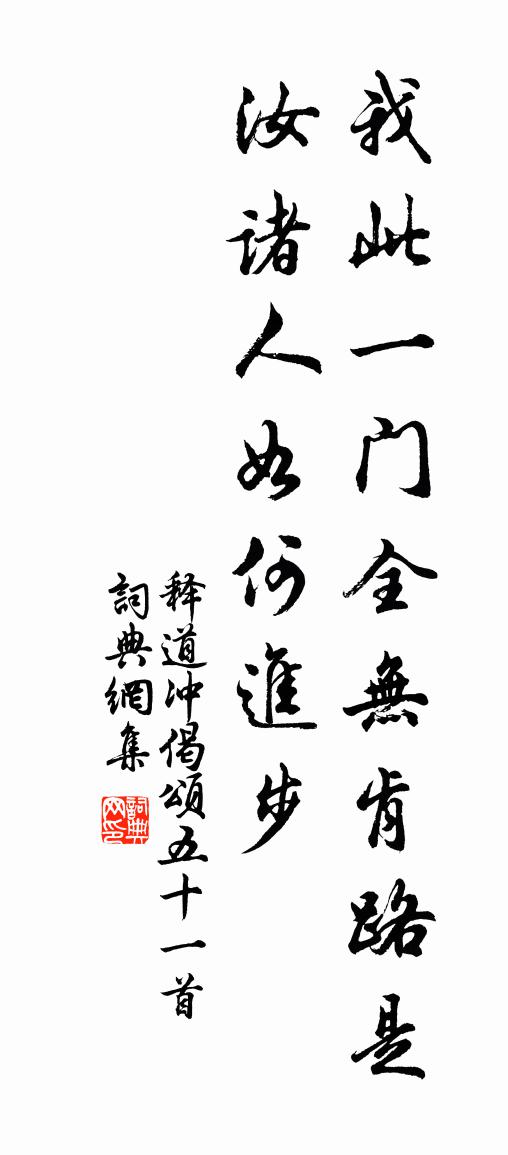 我此一门全無肯路是
汝诸人如何進步
释道冲偈頌五十一首
詞典網集
詞典网印